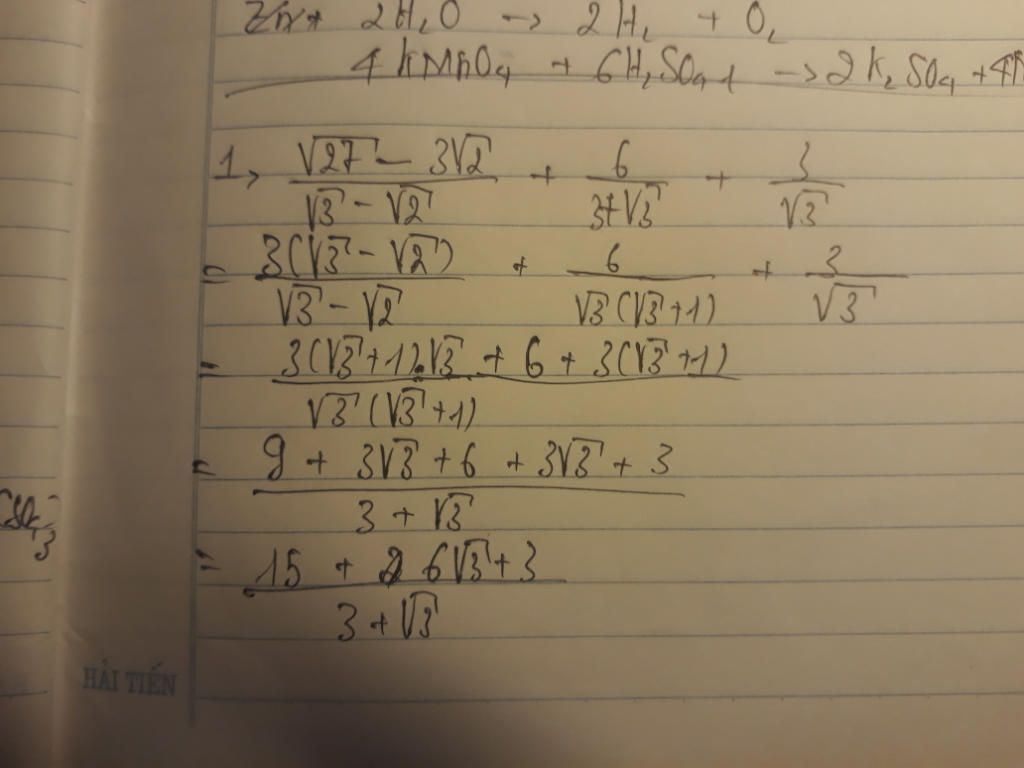 Zn + 2H₂O → 2H₂ + O₂
4 KMnO₄ + 6H₂SO₄ → 2 K₂SO₄ + 4
1, (√27 - 3√2)/(√3 - √2) + 6/(3+√3) + 3/√3
= 3(√3 - √2)/(√3 - √2) + 6/(√3(√3+1)) + 3/√3
= (3(√3+1).√3 + 6 + 3(√3+1))/(√3(√3+1))
= (9 + 3√3 + 6 + 3√3 + 3)/(3 + √3)
= (15 + 6√3 + 3)/(3 + √3)
3
HẢI TIẾN